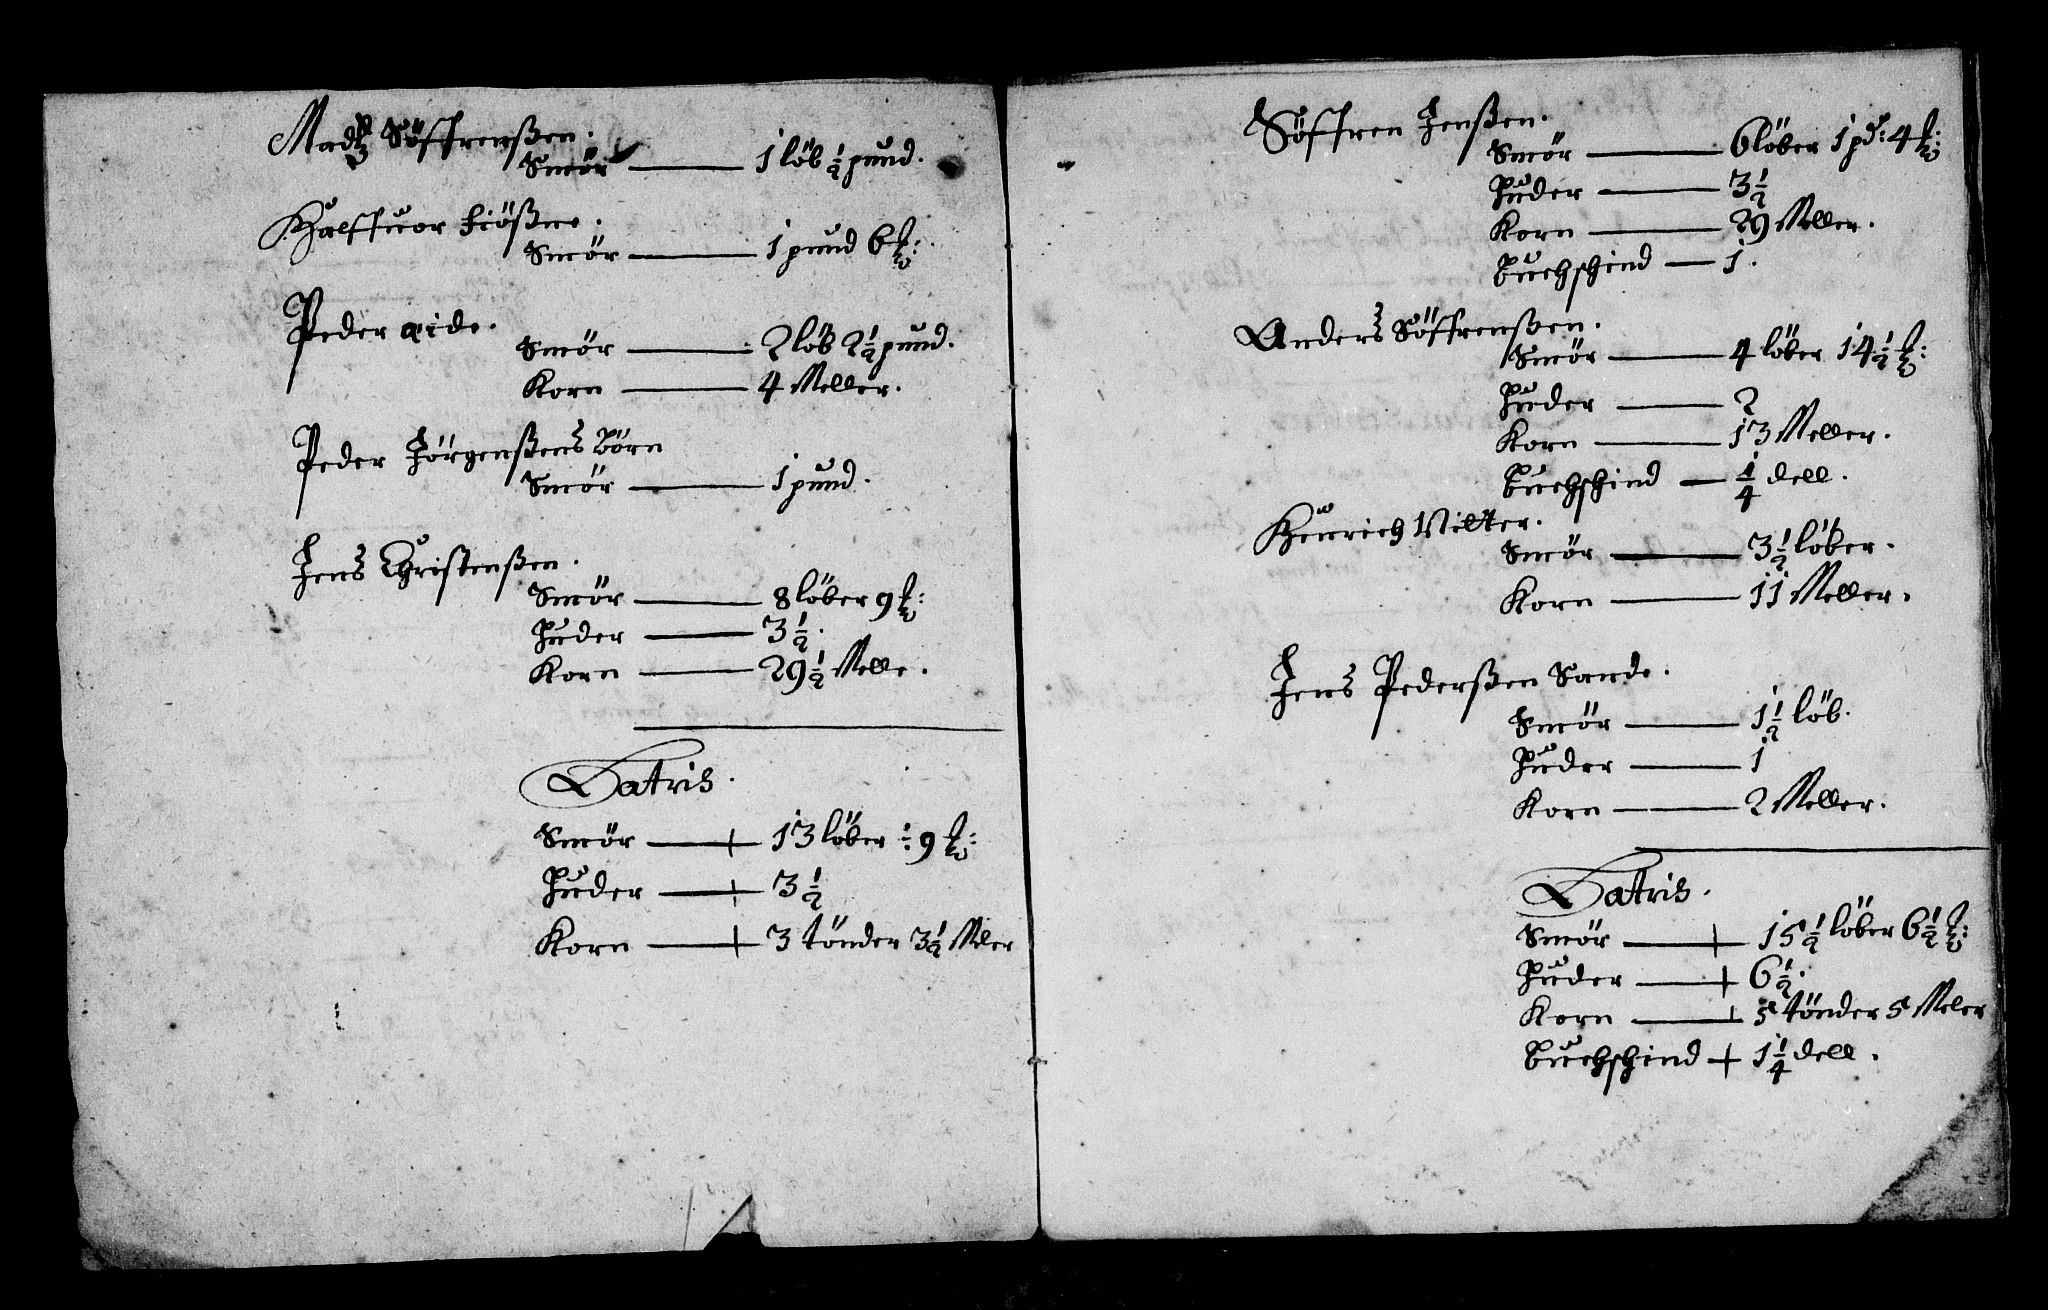 Madtz Söffrenßen.
Smör — 1 löb ½ pund.
Halffuor Fiößne.
Smör — 1 pund 6 ℔:
Peder Eide.
Smör — 2 löb 2½ pund.
Korn — 4 Meller.
Peder Jörgenßens Börn
Smör — 1 pund.
Jens Christenßen.
Smör — 8 löber 9 ℔:
Huder — 3½.
Korn — 29½ Melle.
Latris.
Smör — 13 löber ÷ 9 ℔:
Huder — 3½
Korn — 3 tönder 3½ Meler
Söffren Jenßen.
Smör — 6 löber 1 pd: 4 ℔:
Huder — 3½
Korn — 29 Meller.
Buchschind — 1.
Anders Söffrenßen.
Smör — 4 löber 14½ ℔:
Huder — 2
Korn — 13 Meller.
Buchschind — ¼ dell.
Henrich Milter.
Smör — 3½ löber.
Korn — 11 Meller.
Jens Pederßen Sande.
Smör — 1½ löb.
Huder — 1
Korn — 2 Meller.
Latris.
Smör — 15½ löber 6½ ℔:
Huder — 6½.
Korn — 5 tönder 5 Meler
Buchschind — 1¼ dell.